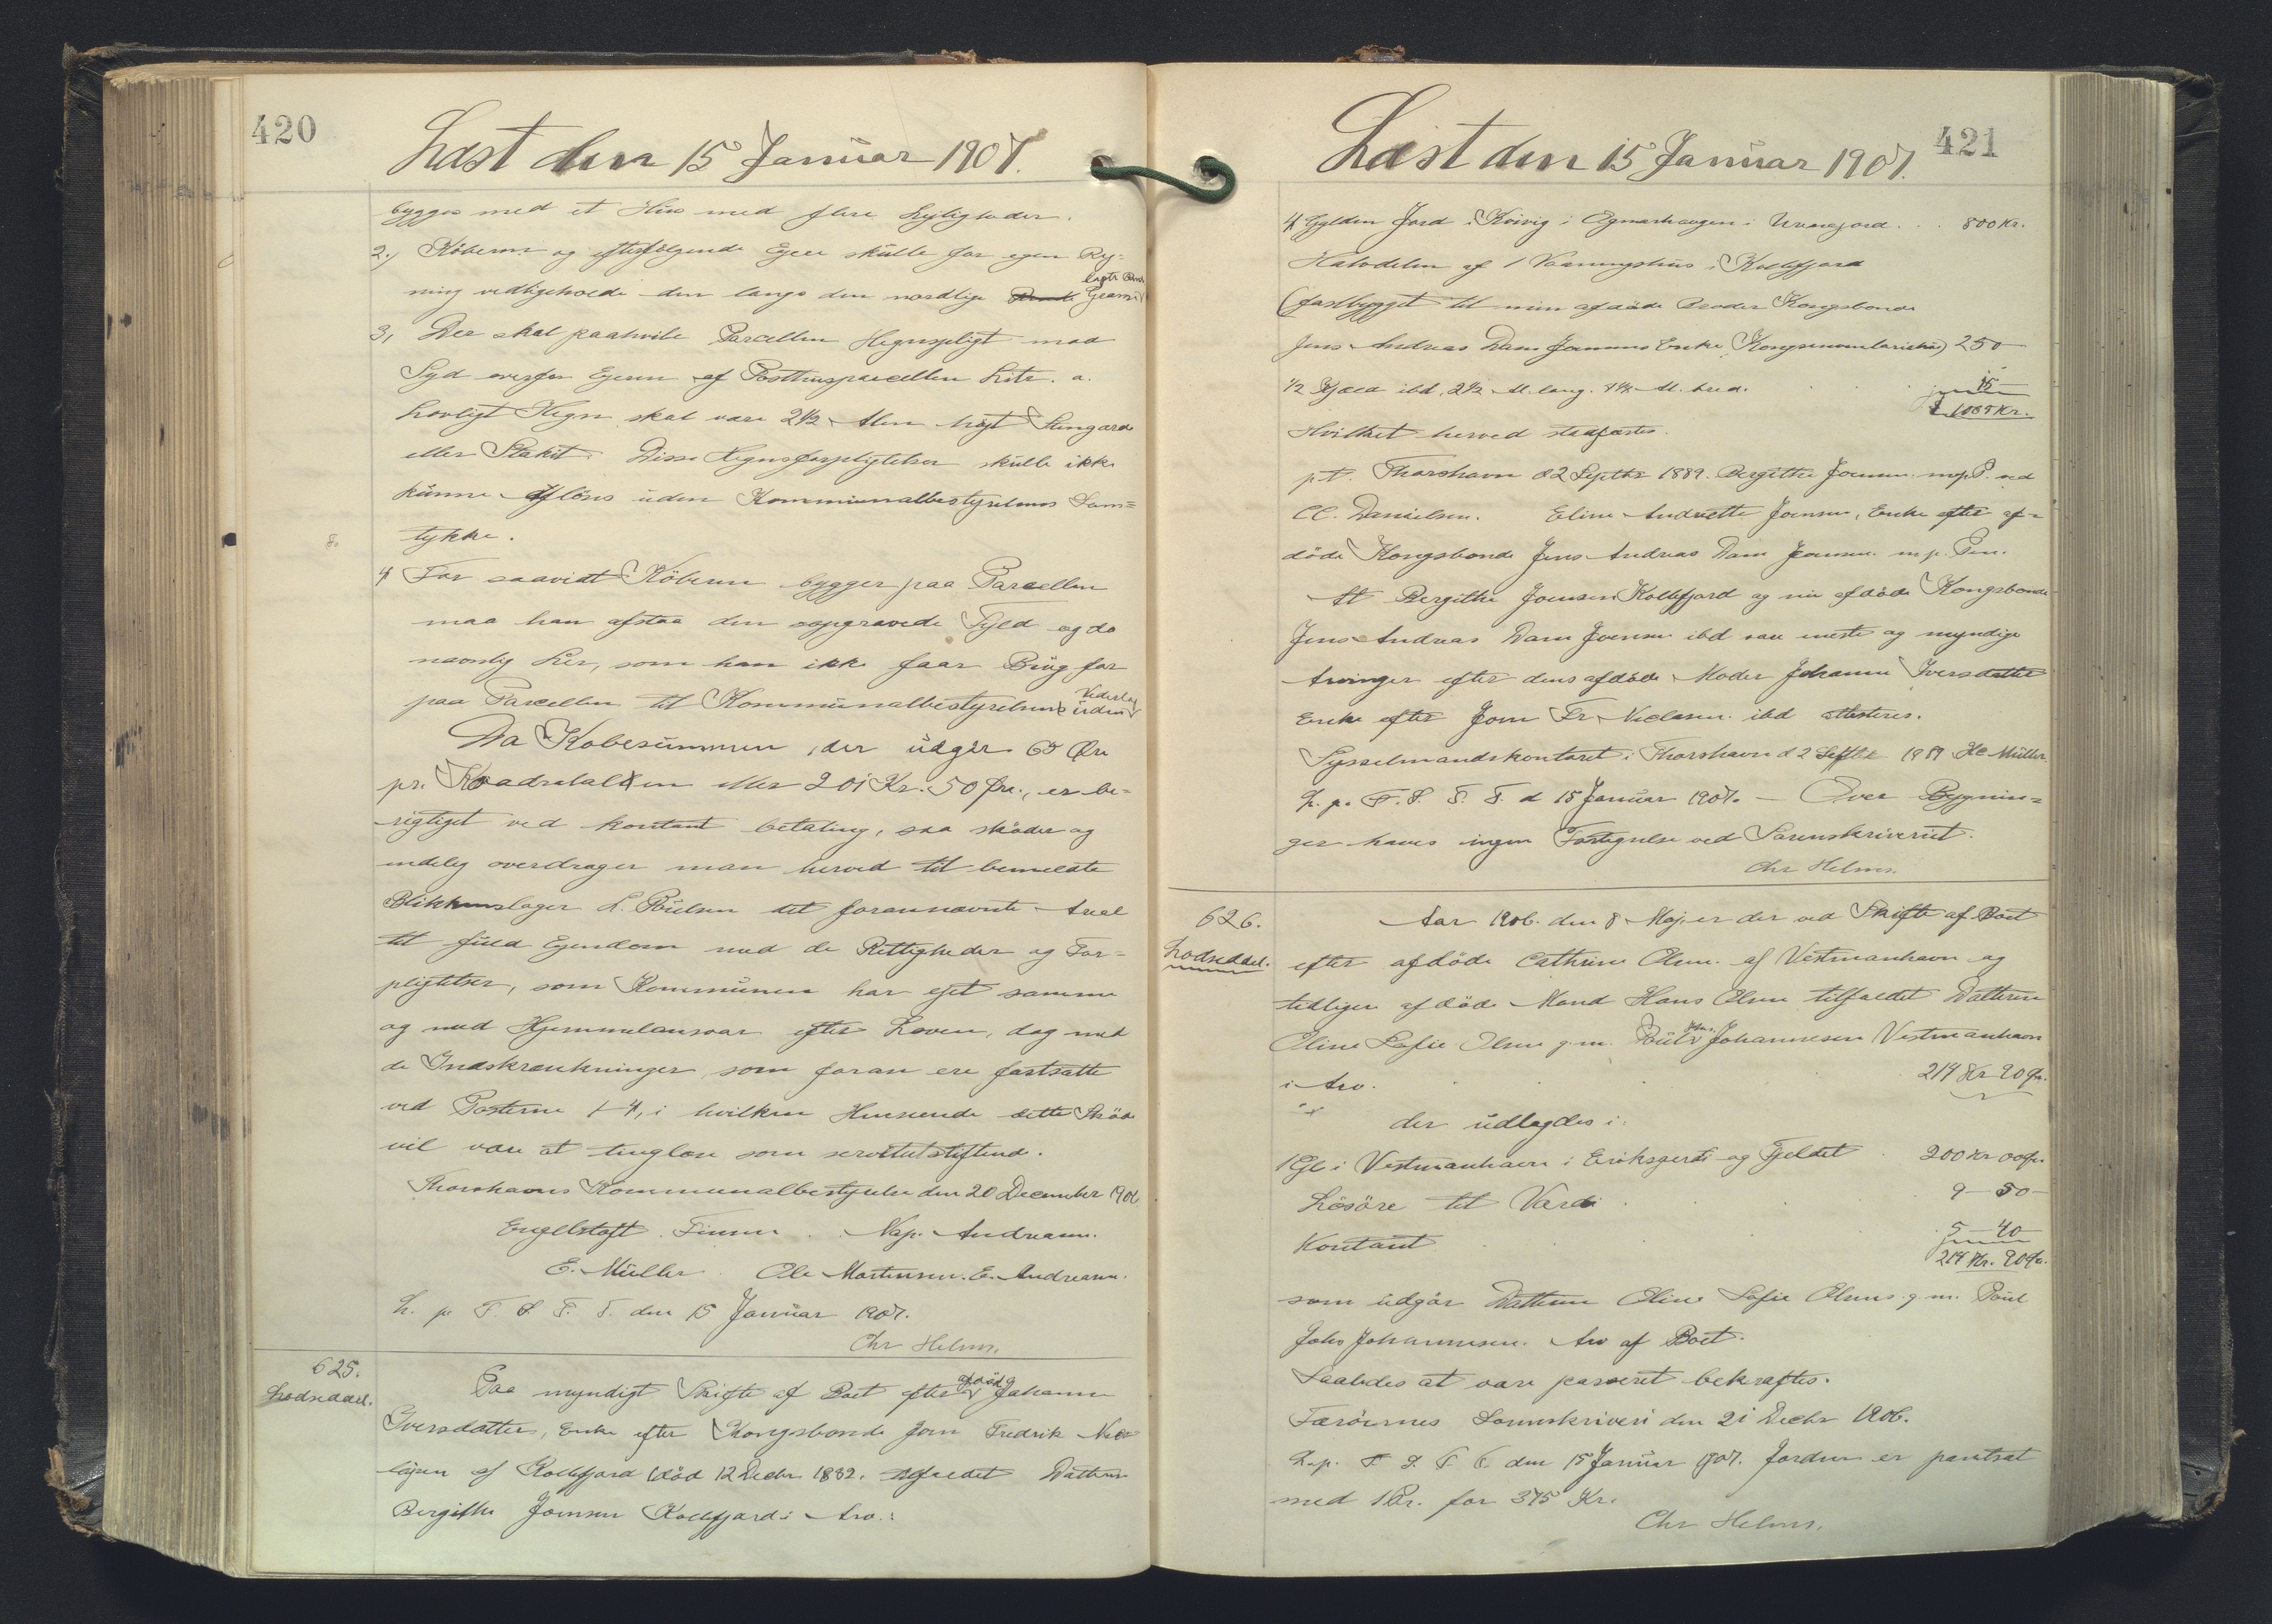 420
Læst den 15 Januar 1907.
bygges med et Hus med flere Lejligheder.
2.) Köberen og efterfölgende Ejere skulle for egen Reg=
ning vedligeholde den langs den nordlige Grænse
3, Der skal paahvile Parcellen Hegnspligt mod
Syd overfor Ejeren af Posthusparcellen Litr. a.
Lovligt Hegn skal være 2½ Alen höjt Stengærde
eller Stakit. Disse Hegnsforpligtelser skulle ikke
kunne aflöses uden Kommunalbestyrelsens Sam=
tykke.
4, For saavidt Köberen bygger paa Parcellen
maa han afstaa den opgravede Fyld og da
navnlig Ler, som han ikke faar Brug for
paa Parcellen til Kommunalbestyrelsen uden Vederlag
Da Köbesummen, der udgör 65 Øre
pr. Kvadratalen eller 201 Kr. 50 Øre, er be=
rigtiget ved kontant betaling, saa sköder og
endelig overdrager man herved til bemeldte
Blikkenslager L. Poulsen det forannævnte Areal
til fuld Ejendom med de Rettigheder og For=
pligtelser, som Kommunen har ejet samme
og med Hjemmelansvar efter Loven, dog med
de Indskrænkninger, som foran ere fastsatte
ved Posterne 1-4, i hvilken Henseende dette Sköde
vil være at tinglæse som servitutstiftend.
Thorshavns Kommunalbestyrelse den 20 December 1906
Engelstoft. Finsen. Nap. Andreasen.
E. Müller. Ole Mortensen. E. Andreasen.
L. p. F. S. F. T. den 15 Januar 1907.
Chr Helms.
625.
Lodseddel.
Paa myndigt Skifte af Boet efter afdöde Johanne
Iversdatter, Enke efter Kongsbonde Joen Fredrik Nic=
lajsen af Kollefjord (död 12 Decbr 1882. tilfaldet Datteren
Bergithe Joensen Kollefjord i Arv.:
421
Læst den 15 Januar 1907.
4 Gylden Jord i Kvivig i 800 Kr.
Halvdelen af 1 Vaaningshus i Kollefjord
(fastbygget til min afdöde Broder Kongsbonde
Jens Andreas Dam Joensens Enke (Kongsinventariehus) 250 -
½ Hjæld ibd, 2½ Al. lang. 1½ Al. bred. 15
1065 Kr.
Hvilket herved stadfæstes.
p.t. Thorshavn d 2 Septbr 1889. Bergithe Joensen m.p.P. ved
CC. Danielsen. Eline Andrette Joensen, Enke efter af=
döde Kongsbonde Jens Andreas Dam Joensen m.p. Pen.
At Bergithe Joensen Kollefjord og nu afdöde Kongsbonde
Jens Andreas Dam Joensen ibd vare eneste og myndige
Arvinger efter deres afdöde Moder Johanne Iversdatter
Enke efter Joen Fr. Niclasen ibd attesteres.
Sysselmandskontoret i Thorshavn d 2 Septbr 1889 HC Müller.
L. p. F. S. F. T. d 15 Januar 1907. - Over Bygnin=
ger haves ingen Fortegnelse ved Sorenskriveriet.
Chr Helms.
626.
Lodseddel.
Aar 1906. den 8 Maj er der ved Skifte af Boet
efter afdöde Cathrine Olsen af Vestmanhavn og
tidligere afdöde Mand Hans Olsen tilfaldet Datteren
Eline Sofie Olsen g.m. Poul Johs. Johannesen Vestmanhavn
i Arv. 214 Kr 90 Ør.
der udlagdes i:
1 Gl. i Vestmanhavn i Eriksgerdi og Fjeldet 200 Kr 00 Ør.
Lösöre til Værdi 9 - 50 -
Kontant 5 - 40
214 Kr. 90 Ør.
som udgör Datteren Eline Sofie Olsens g.m. Poul
Johs Johannesen. Arv af Boet.
Saaledes at være passeret bekræftes.
Færöernes Sorenskriveri den 21 Decbr 1906.
L. p. F. S. F. T. den 15 Januar 1907. Jorden er pantsat
med 1 Pr. for 375 Kr.
Chr Helms.